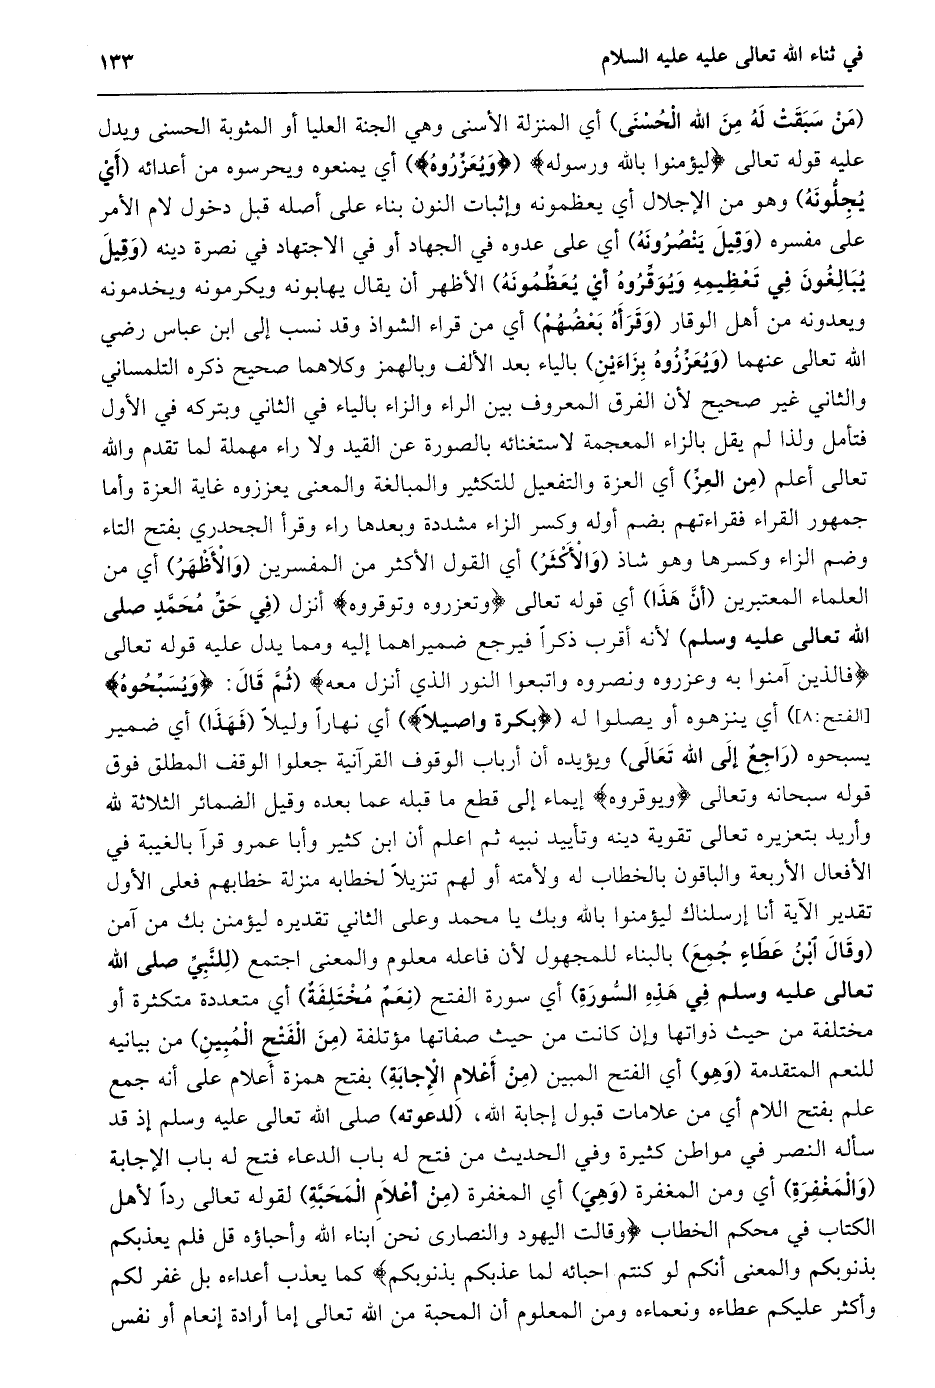 في ثناء الله تعالى عليه عليه السلام ١٣٣
(مَنْ سَبَقَتْ لَهُ مِنَ الله الْحُسْنَى) أي المنزلة الأسنى وهي الجنة العليا أو المثوبة الحسنى ويدل
عليه قوله تعالى ﴿ليؤمنوا بالله ورسوله﴾ (﴿وَيُعَزِّرُوهُ﴾) أي يمنعوه ويحرسوه من أعدائه (أَيْ
يُجِلُّونَهُ) وهو من الإجلال أي يعظمونه وإثبات النون بناء على أصله قبل دخول لام الأمر
على مفسره (وَقِيلَ يَنْصُرُونَهُ) أي على عدوه في الجهاد أو في الاجتهاد في نصرة دينه (وَقِيلَ
يُبَالِغُونَ فِي تَعْظِيمِهِ وَيُوَقِّرُوهُ أيْ يُعَظِّمُونَهُ) الأظهر أن يقال يهابونه ويكرمونه ويخدمونه
ويعدونه من أهل الوقار (وَقَرَأَهُ بَعْضُهُمْ) أي من قراء الشواذ وقد نسب إلى ابن عباس رضي
الله تعالى عنهما (وَيُعَزِّزُوهُ بِزَاءَيْنِ) بالياء بعد الألف وبالهمز وكلاهما صحيح ذكره التلمساني
والثاني غير صحيح لأن الفرق المعروف بين الراء والزاء بالياء في الثاني وبتركه في الأول
فتأمل ولذا لم يقل بالزاء المعجمة لاستغنائه بالصورة عن القيد ولا راء مهملة لما تقدم والله
تعالى أعلم (مِن العِزِّ) أي العزة والتفعيل للتكثير والمبالغة والمعنى يعززوه غاية العزة وأما
جمهور القراء فقراءتهم بضم أوله وكسر الزاء مشددة وبعدها راء وقرأ الجحدري بفتح التاء
وضم الزاء وكسرها وهو شاذ (وَالْأَكْثَرُ) أي القول الأكثر من المفسرين (وَالْأَظْهَرُ) أي من
العلماء المعتبرين (أنَّ هَذَا) أي قوله تعالى ﴿وتعزروه وتوقروه﴾ أنزل (فِي حَقِّ مُحَمَّدٍ صلى
الله تعالى عليه وسلم) لأنه أقرب ذكراً فيرجع ضميراهما إليه ومما يدل عليه قوله تعالى
﴿فالذين آمنوا به وعزروه ونصروه واتبعوا النور الذي أنزل معه﴾ (ثُمَّ قَالَ: ﴿وَيُسَبِّحُوهُ﴾
[الفتح:٨]) أي ينزهوه أو يصلوا له (﴿بكرة واصيلاً﴾) أي نهاراً وليلاً (فَهَذَا) أي ضمير
يسبحوه (رَاجِعٌ إلَى الله تَعَالَى) ويؤيده أن أرباب الوقوف القرآنية جعلوا الوقف المطلق فوق
قوله سبحانه وتعالى ﴿ويوقروه﴾ إيماء إلى قطع ما قبله عما بعده وقيل الضمائر الثلاثة لله
وأريد بتعزيره تعالى تقوية دينه وتأييد نبيه ثم اعلم أن ابن كثير وأبا عمرو قرآ بالغيبة في
الأفعال الأربعة والباقون بالخطاب له ولأمته أو لهم تنزيلاً لخطابه منزلة خطابهم فعلى الأول
تقدير الآية أنا إرسلناك ليؤمنوا بالله وبك يا محمد وعلى الثاني تقديره ليؤمنن بك من آمن
(وقَالَ آبْنُ عَطَاءٍ جُمِعَ) بالبناء للمجهول لأن فاعله معلوم والمعنى اجتمع (لِلنَّبِيِّ صلى الله
تعالى عليه وسلم فِي هَذِهِ السُّورَةِ) أي سورة الفتح (نِعَمٌ مُخْتَلِفَةٌ) أي متعددة متكثرة أو
مختلفة من حيث ذواتها وإن كانت من حيث صفاتها مؤتلفة (مِنَ الْفَتْحِ الْمُبِينِ) من بيانيه
للنعم المتقدمة (وَهِو) أي الفتح المبين (مِنْ أعْلامِ الْإِجابَةِ) بفتح همزة أعلام على أنه جمع
علم بفتح اللام أي من علامات قبول إجابة الله، (لدعوته) صلى الله تعالى عليه وسلم إذ قد
سأله النصر في مواطن كثيرة وفي الحديث من فتح له باب الدعاء فتح له باب الإجابة
(وَالْمَغْفِرَةِ) أي ومن المغفرة (وَهِيَ) أي المغفرة (مِنْ أعْلاَمِ الْمَحَبَّةِ) لقوله تعالى رداً لأهل
الكتاب في محكم الخطاب ﴿وقالت اليهود والنصارى نحن ابناء الله وأحباؤه قل فلم يعذبكم
بذنوبكم والمعنى أنكم لو كنتم احبائه لما عذبكم بذنوبكم﴾ كما يعذب أعداءه بل غفر لكم
وأكثر عليكم عطاءه ونعماءه ومن المعلوم أن المحبة من الله تعالى إما أرادة إنعام أو نفس